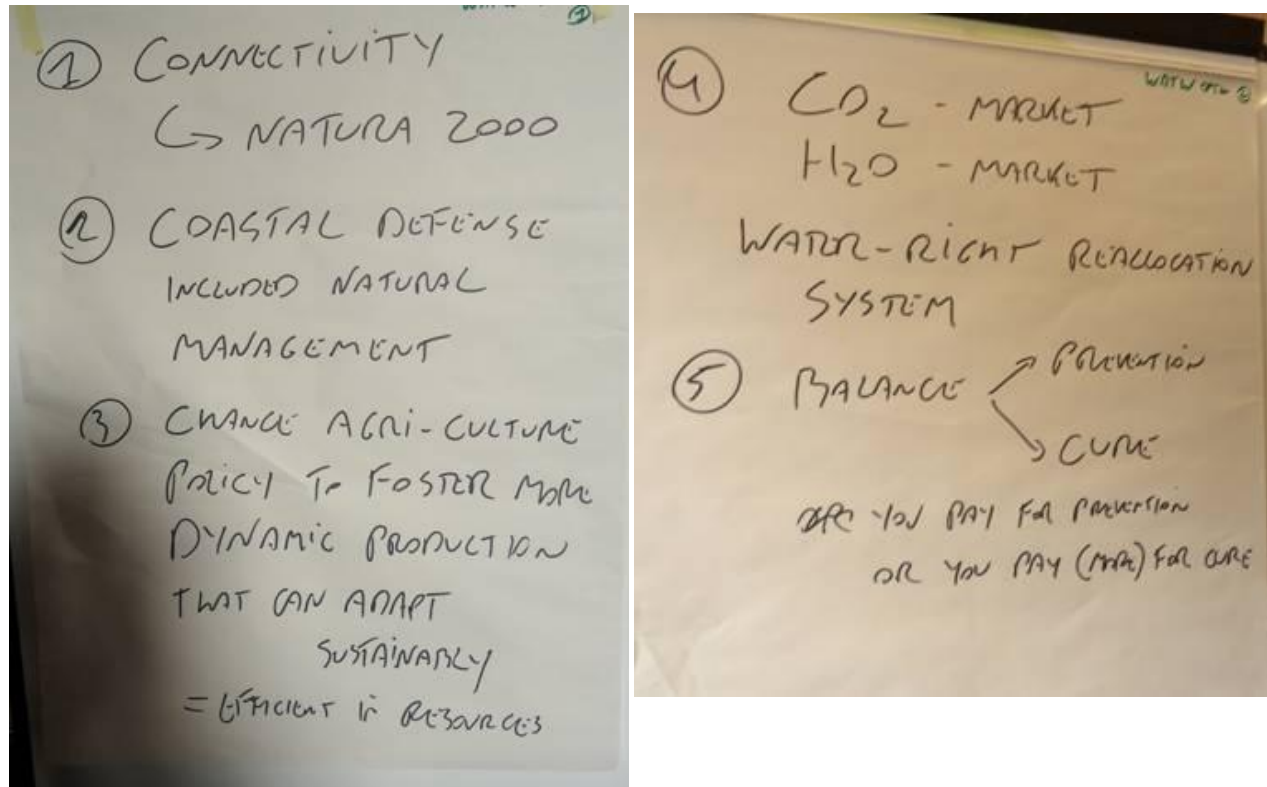 ① CONNECTIVITY
↳ NATURA 2000
② COASTAL DEFENSE
INCLUDED NATURAL
MANAGEMENT
③ CHANGE AGRI-CULTURE
POLICY TO FOSTER MORE
DYNAMIC PRODUCTION
THAT CAN ADAPT
SUSTAINABLY
= EFFICIENT IN RESOURCES
④ CO2 - MARKET
H2O - MARKET
WATER-RIGHT REALLOCATION
SYSTEM
⑤ BALANCE
↗ PREVENTION
↘ CURE
YOU PAY FOR PREVENTION
OR YOU PAY (MORE) FOR CURE